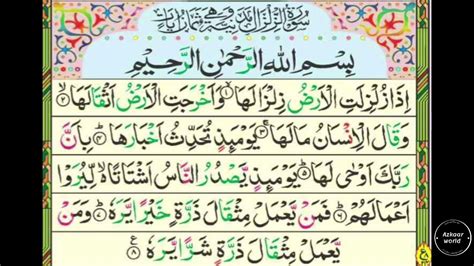 سُورَةُ الزِّلْزَالِ مَدَنِيَّةٌ وَّهِيَ ثَمَانُ اٰيَاتٍ
بِسْمِ اللّٰهِ الرَّحْمٰنِ الرَّحِيْمِ
اِذَا زُلْزِلَتِ الْاَرْضُ زِلْزَالَهَا ۙ۱ وَاَخْرَجَتِ الْاَرْضُ اَثْقَالَهَا ۙ۲
وَقَالَ الْاِنْسَانُ مَا لَهَا ۚ۳ يَوْمَئِذٍ تُحَدِّثُ اَخْبَارَهَا ۙ۴ بِاَنَّ
رَبَّكَ اَوْحٰى لَهَا ؕ۵ يَوْمَئِذٍ يَّصْدُرُ النَّاسُ اَشْتَاتًا ۙ لِّيُرَوْا
اَعْمَالَهُمْ ؕ۶ فَمَنْ يَّعْمَلْ مِثْقَالَ ذَرَّةٍ خَيْرًا يَّرَهٗ ؕ۷ وَمَنْ
يَّعْمَلْ مِثْقَالَ ذَرَّةٍ شَرًّا يَّرَهٗ ۸
Azkaar
world